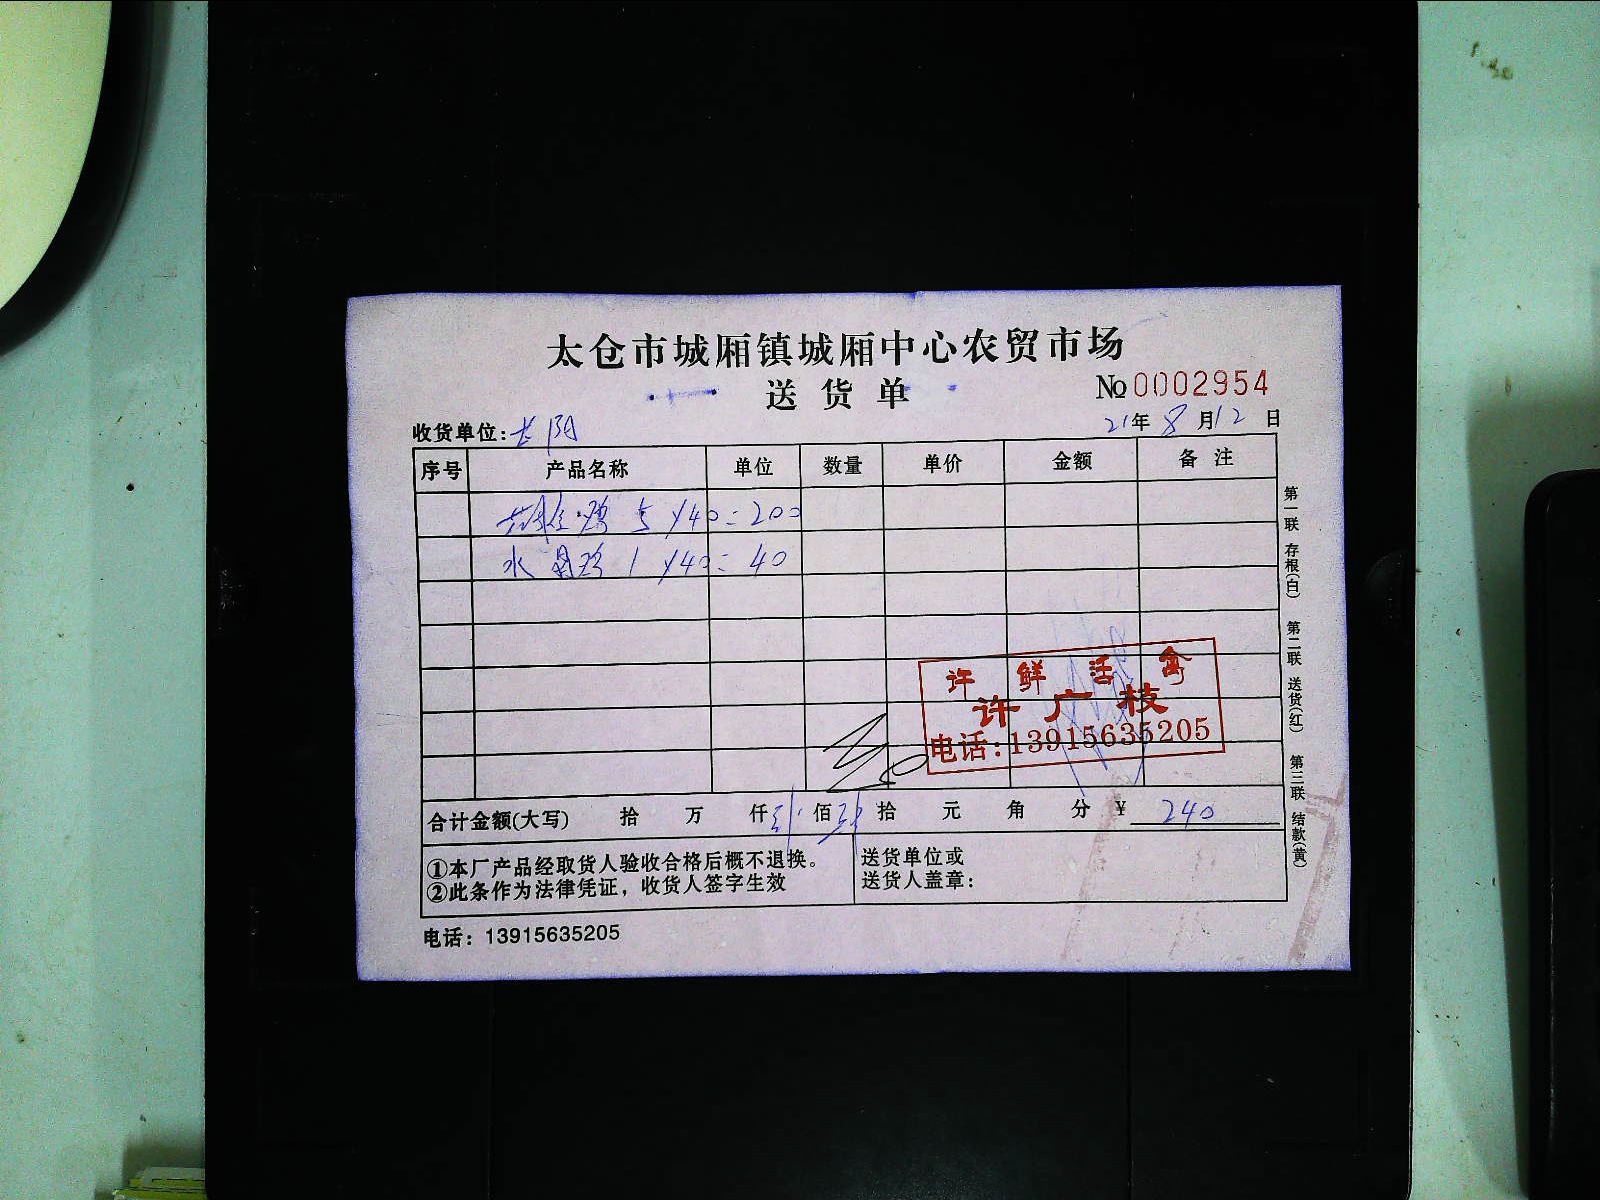 太仓市城厢镇城厢中心农贸市场
送货单
№0002954
收货单位:长阳
21年8月12日
序号 产品名称 单位 数量 单价 金额 备注
5 ×40=200
水 1 ×40=40
许鲜活禽
许广枝
电话:13915635205
合计金额(大写) 拾 万 仟 佰 拾 元 角 分 ¥ 240
①本厂产品经取货人验收合格后概不退换。
②此条作为法律凭证，收货人签字生效
送货单位或
送货人盖章:
电话: 13915635205
第一联 存根(白) 第二联 送货(红) 第三联 结款(黄)